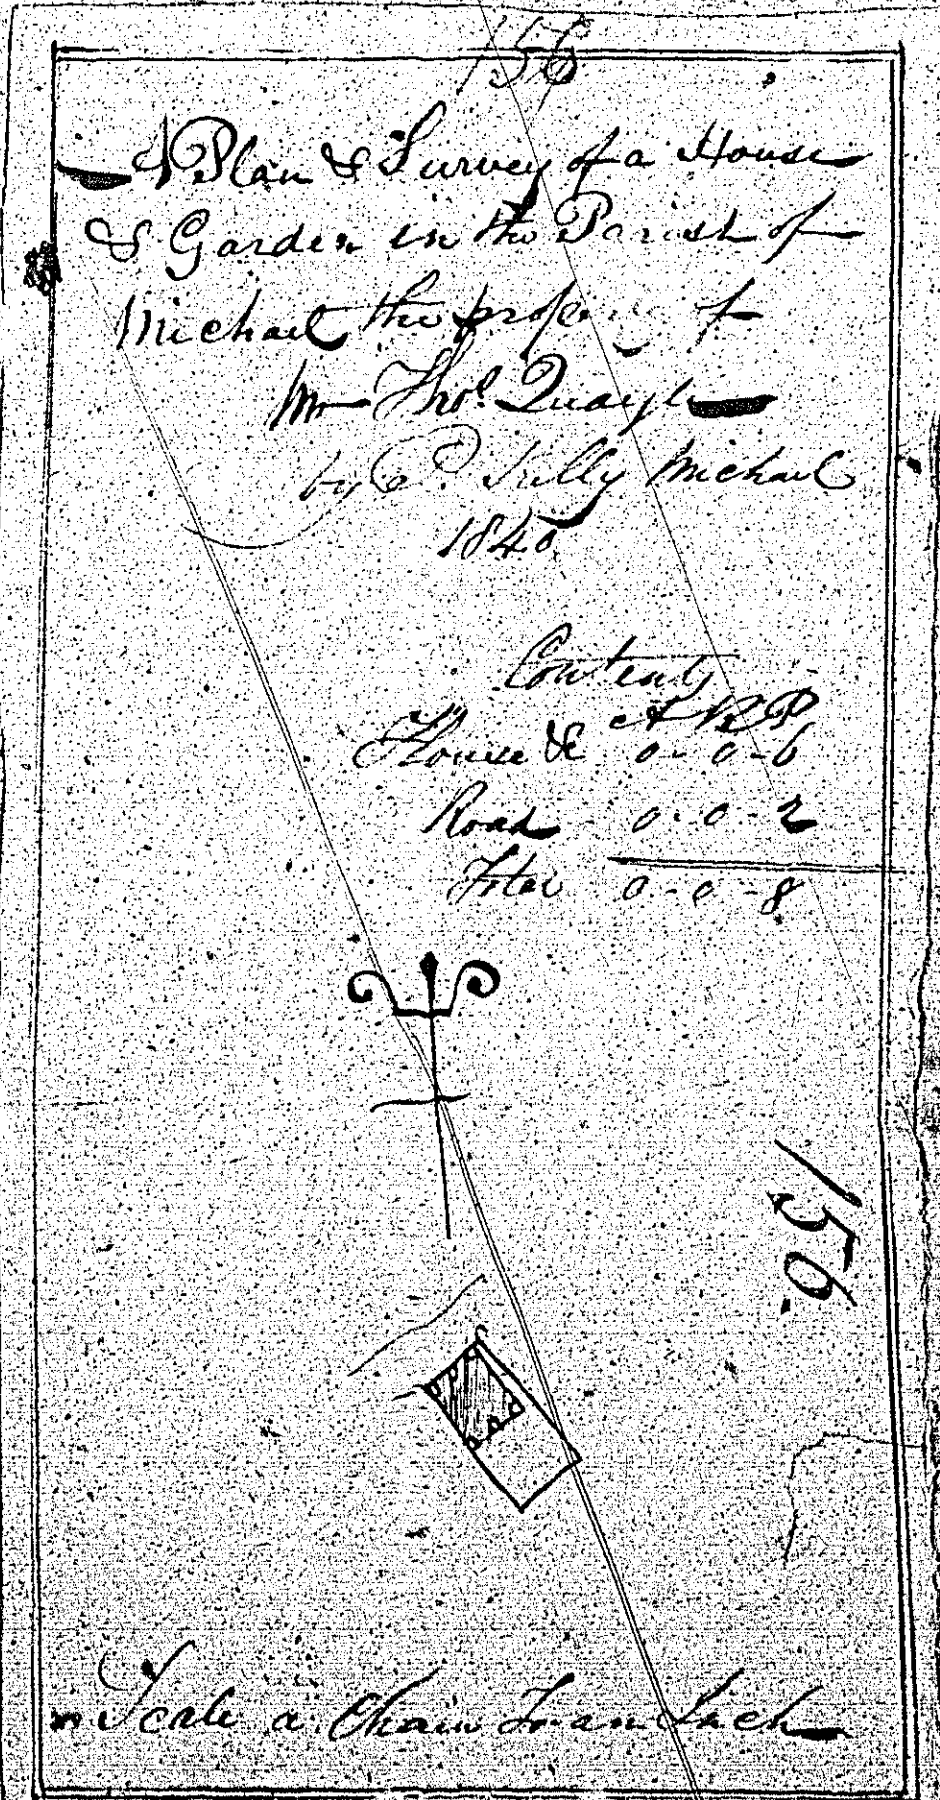 156
A Plan & Survey of a House
& Garden in the Parish of
Michael the property of
Mr Thos. Quayle
by P. Kelly Michael
1840
Contents
A R P
House & 0-0-6
Road - 0-0-2
Total 0-0-8
156
Scale a Chain To an Inch